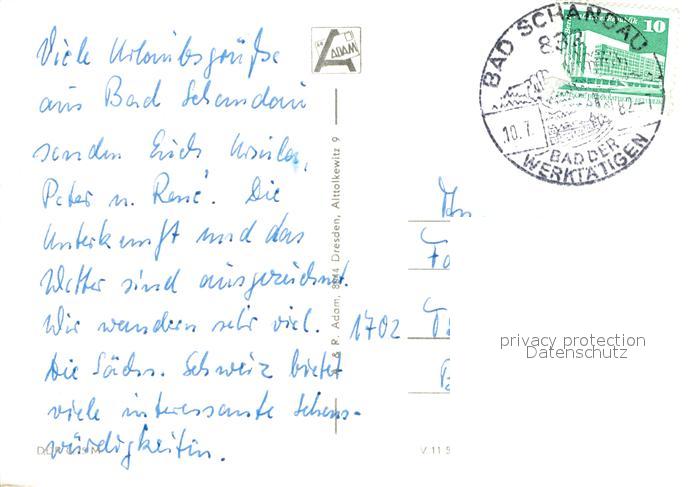 Viele Urlaubsgrüße
aus Bad Schandau
senden Euch Ursula,
Peter u. René. Die
Unterkunft und das
Wetter sind ausgezeichnet.
Wir wandern sehr viel.
Die Sächs. Schweiz bietet
viele interessante Sehens-
würdigkeiten.
"A" ADAM
R. Adam, Dresden, Alttolkewitz 9
BAD SCHANDAU
10.7. 82-1
BAD DER
WERKTÄTIGEN
10
An
Fa
1702
privacy protection
Datenschutz
V 11 5